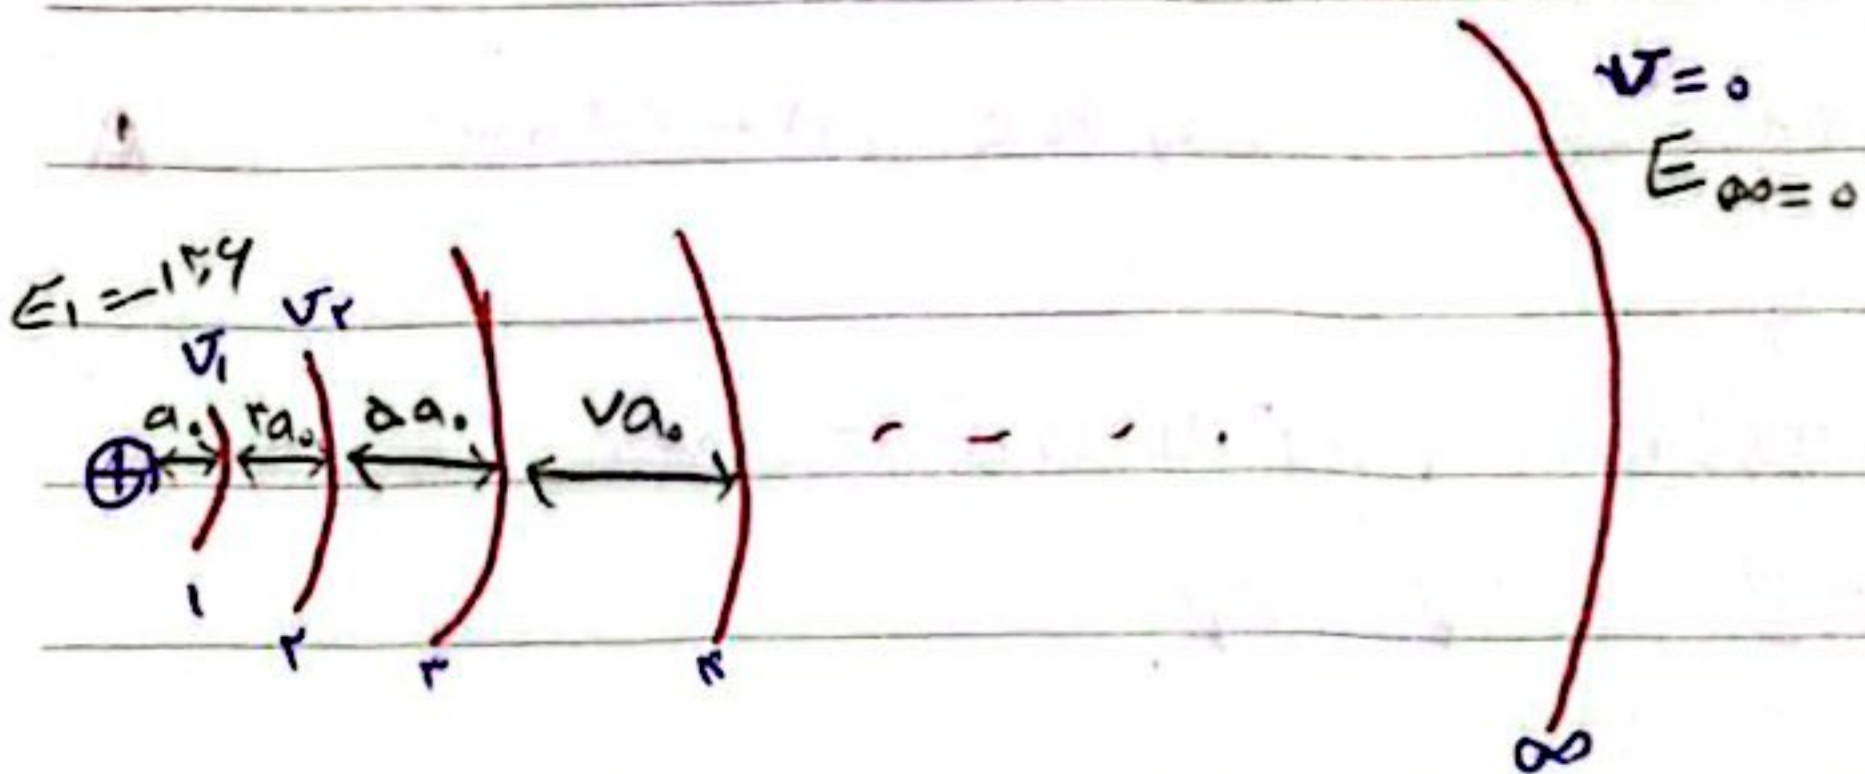 V = ۰
E∞ = ۰
E₁ = -۱۳,۶
V₁ V₂
a₀ ۳a₀ ۵a₀ ۷a₀
+
۱ ۲ ۳ ۴ ∞